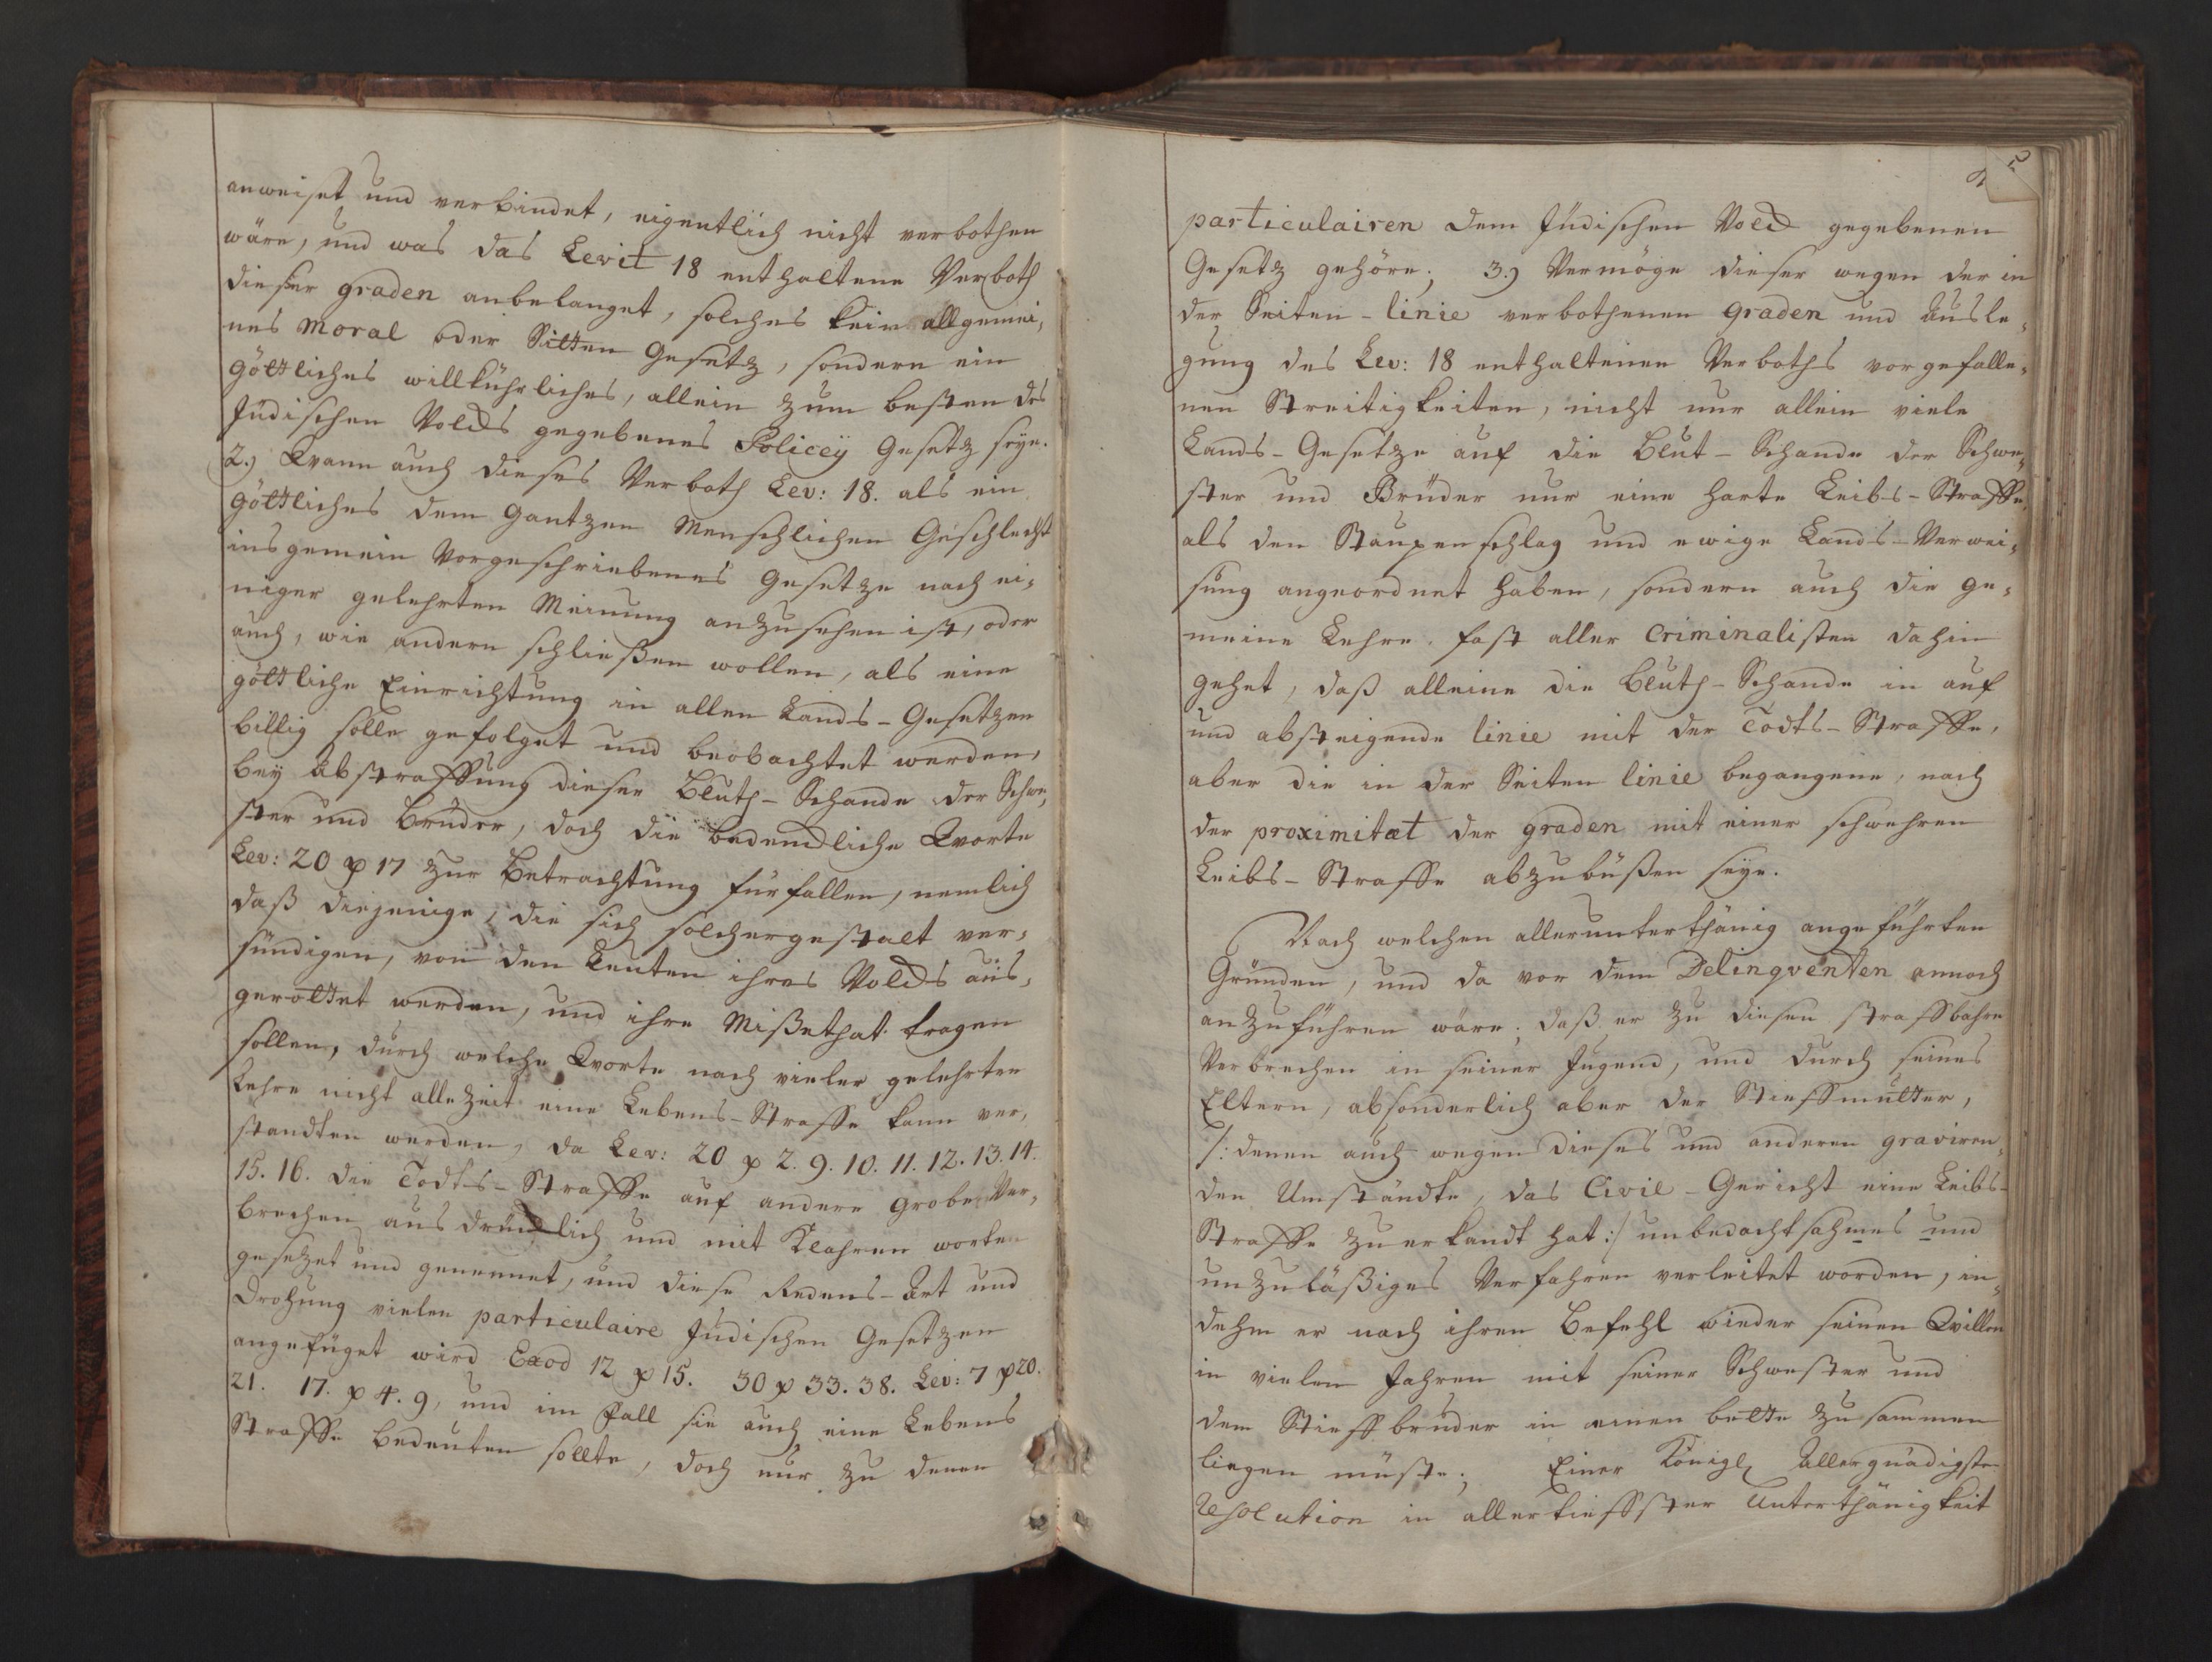 anweiset und verbindet, eigentlich nicht verbothen
wäre, und was das Levit 18 enthaltene Verboth
dieser graden anbelanget, solches kein allgemei,
nes Moral oder Sitten Gesetz, sondern ein
göttliches willkührliches, allein zum besten des
Jüdischen Volcks gegebenes Policeÿ Gesetz seye.
2.) Wann auch dieses Verboth Lev: 18. als ein
göttliches dem gantzen Menschlichen Geschlecht
insgemein Vorgeschriebenes Gesetze nach ei,
niger gelehrten Meinung anzusehen ist, oder
auch, wie andern schließen wollen, als eine
göttliche Einrichtung in allen Lands-Gesetzen
billig solle gefolget und beobachtet werden,
beÿ Abstraffung dieser Bluth-Schande der Schwe,
ster und Bruder, doch die bedenckliche Worte
Lev: 20 p 17 zur Betrachtung fürfallen, nemlich
daß diejenige, die sich solchergestalt ver,
sündigen, von den Leuten ihres Volcks aus,
gerottet werden, und ihre Mißethat tragen
sollen, durch welche Worte nach vieler gelehrten
Lehre nicht allezeit eine Lebens-Straffe kann ver,
standten werden, da Lev: 20 p 2. 9. 10. 11. 12. 13. 14.
15. 16. die Todts-Straffe auf andere grobe Ver,
brechen ausdrücklich und mit Klahren worten
gesetzet und genennet, und diese Redens-Art und
Drohung vielen particulaire Jüdischen Gesetzen
angefüget wird Exod 12 p 15. 30 p 33. 38. Lev: 7 p 20.
21. 17. p 4. 9, und im Fall sie auch eine Lebens
Straffe bedeuten sollte, doch nur zu denen
2
particulairen dem Jüdischen Volck gegebenen
Gesetz gehöre; 3.) Vermöge dieser wegen der in
der Seiten-linie verbothenen graden und Ausle,
gung des Lev: 18 enthaltenen Verboths vorgefalle,
nen Streitigkeiten, nicht nur allein viele
Lands-Gesetze auf die Blut-Schande der Schwe,
ster und Brüder nur eine harte Leibs-Straffe,
als den Staupenschlag und ewige Lands-Verwei,
sung angeordnet haben, sondern auch die ge,
meine Lehre fast aller Criminalisten dahin
gehet, daß alleine die Bluth-Schande in auf
und absteigende linie mit der Todts-Straffe,
aber die in der Seiten linie begangene, nach
der proximitæt der graden mit einer schwehren
Leibs-Straffe abzubüßen seye.
Nach welchen allerunterthänig angeführten
Gründen, und da vor dem Delinqventen annoch
anzuführen wäre, daß er zu diesen straffbahre
Verbrechen in seiner Jugend, und durch seines
Eltern, absonderlich aber der Stieffmutter,
/: denen auch wegen dieses und anderen graviren,
den Umständte, das Civil-Gericht eine Leibs-
Straffe zuerkandt hat :/ unbedachtsahmes und
unzuläßiges Verfahren verleitet worden, in,
dehm er nach ihren Befehl wieder seinen Willen
in vielen Jahren mit seiner Schwester und
dem Stieffbruder in einen bette zusammen
liegen müste; Einer Königl Allergnädigste
Resolution in allertieffster Unterthänigkeit